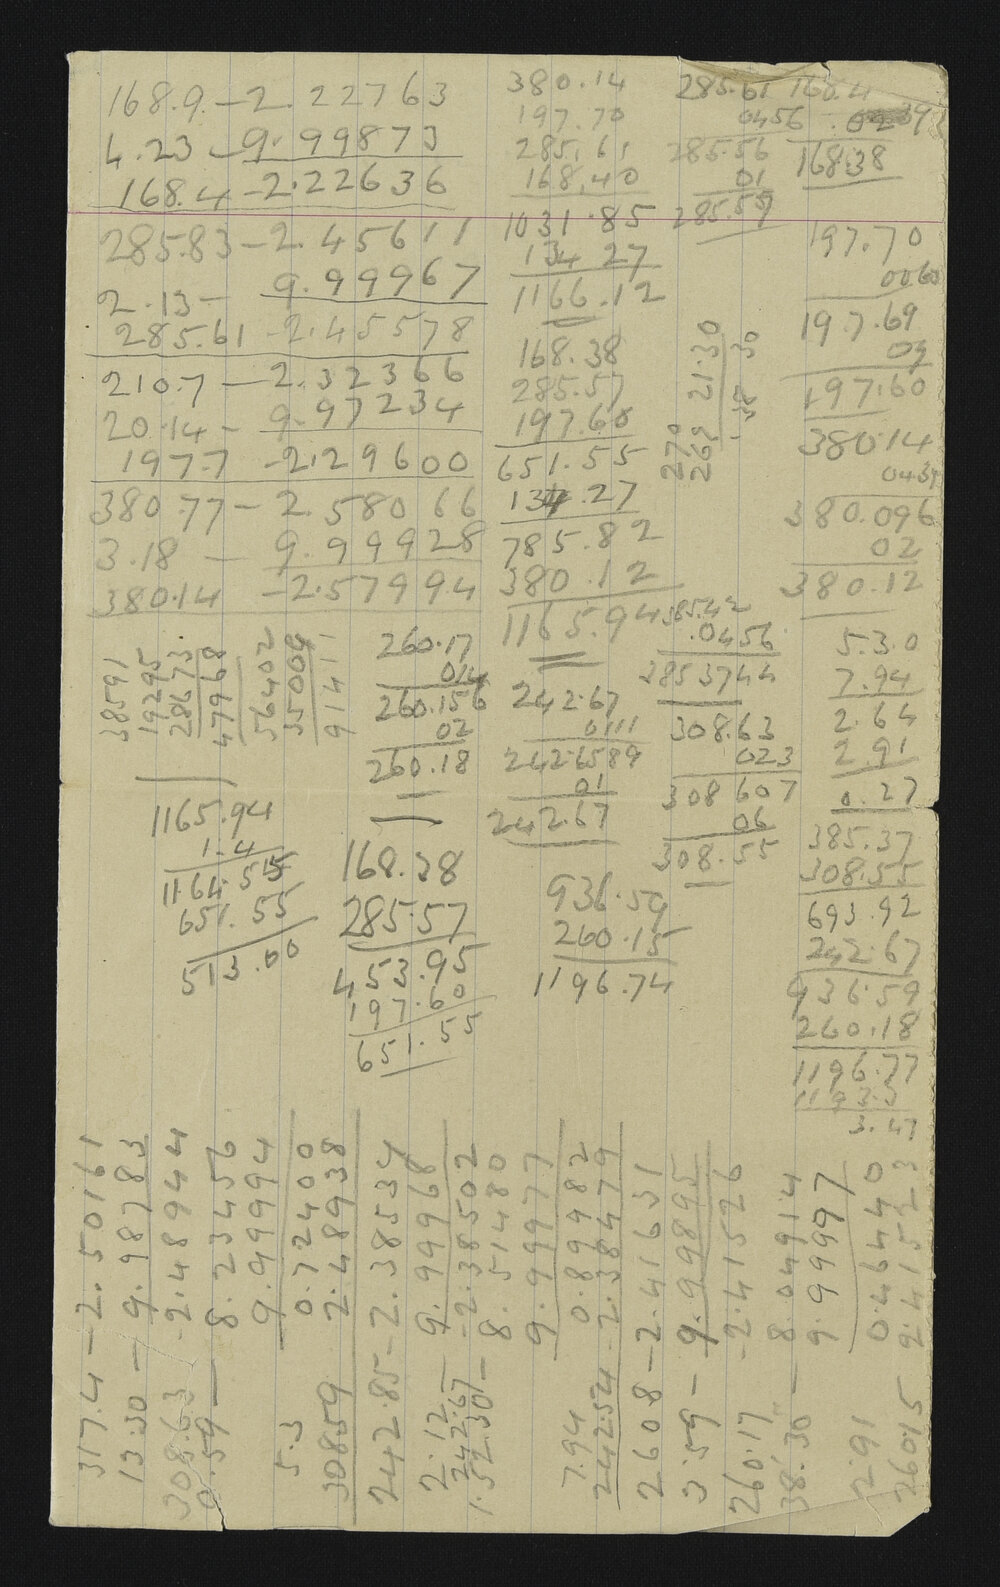 168.9.-2.22763
4.23 -9.99873
168.4-2.22636
285.83-2.45611
2.13- 9.99967
285.61-2.45578
210.7-2.32366
20.14- 9.97234
197.7 -2.29600
380.77- 2.58066
3.18 - 9.99928
380.14 -2.57994
380.14
197.70
285.61
168.40
1031.85
134 27
1166.12
168.38
285.57
197.60
651.55
134.27
785.82
380.12
1165.94
285.61
0456
285.56
01
285.57
168.4
168.38
197.70
0060
197.69
09
197.60
380.14
380.096
02
380.12
270
269 21.30
30
38591
19295
28673
47968
56402
35009
91411
260.17
014
260.156
02
260.18
242.67
0111
242.6589
01
242.67
385.42
.0456
3853744
308.63
023
308607
06
308.55
5.30
7.94
2.64
2.91
0.27
385.37
308.55
693.92
242.67
936.59
260.18
1196.77
1193.3
3.47
1165.94
1.4
1164.55
651.55
513.00
168.38
285.57
453.95
197.60
651.55
936.59
260.15
1196.74
317.4-2.50161
13.30- 9.98783
308.63 -2.48944
0.59- 8.23456
9.99994
5.3 0.72400
308.59 2.48938
242.85-2.38534
2.12- 9.99968
242.67 -2.38502
1.52.30- 8.51480
9.99977
7.94 0.89982
242.54 -2.38479
260.8-2.41631
3.59- 9.99895
260.17 -2.41526
38.30- 8.04914
9.99997
2.91 0.46440
260.15 2.41523